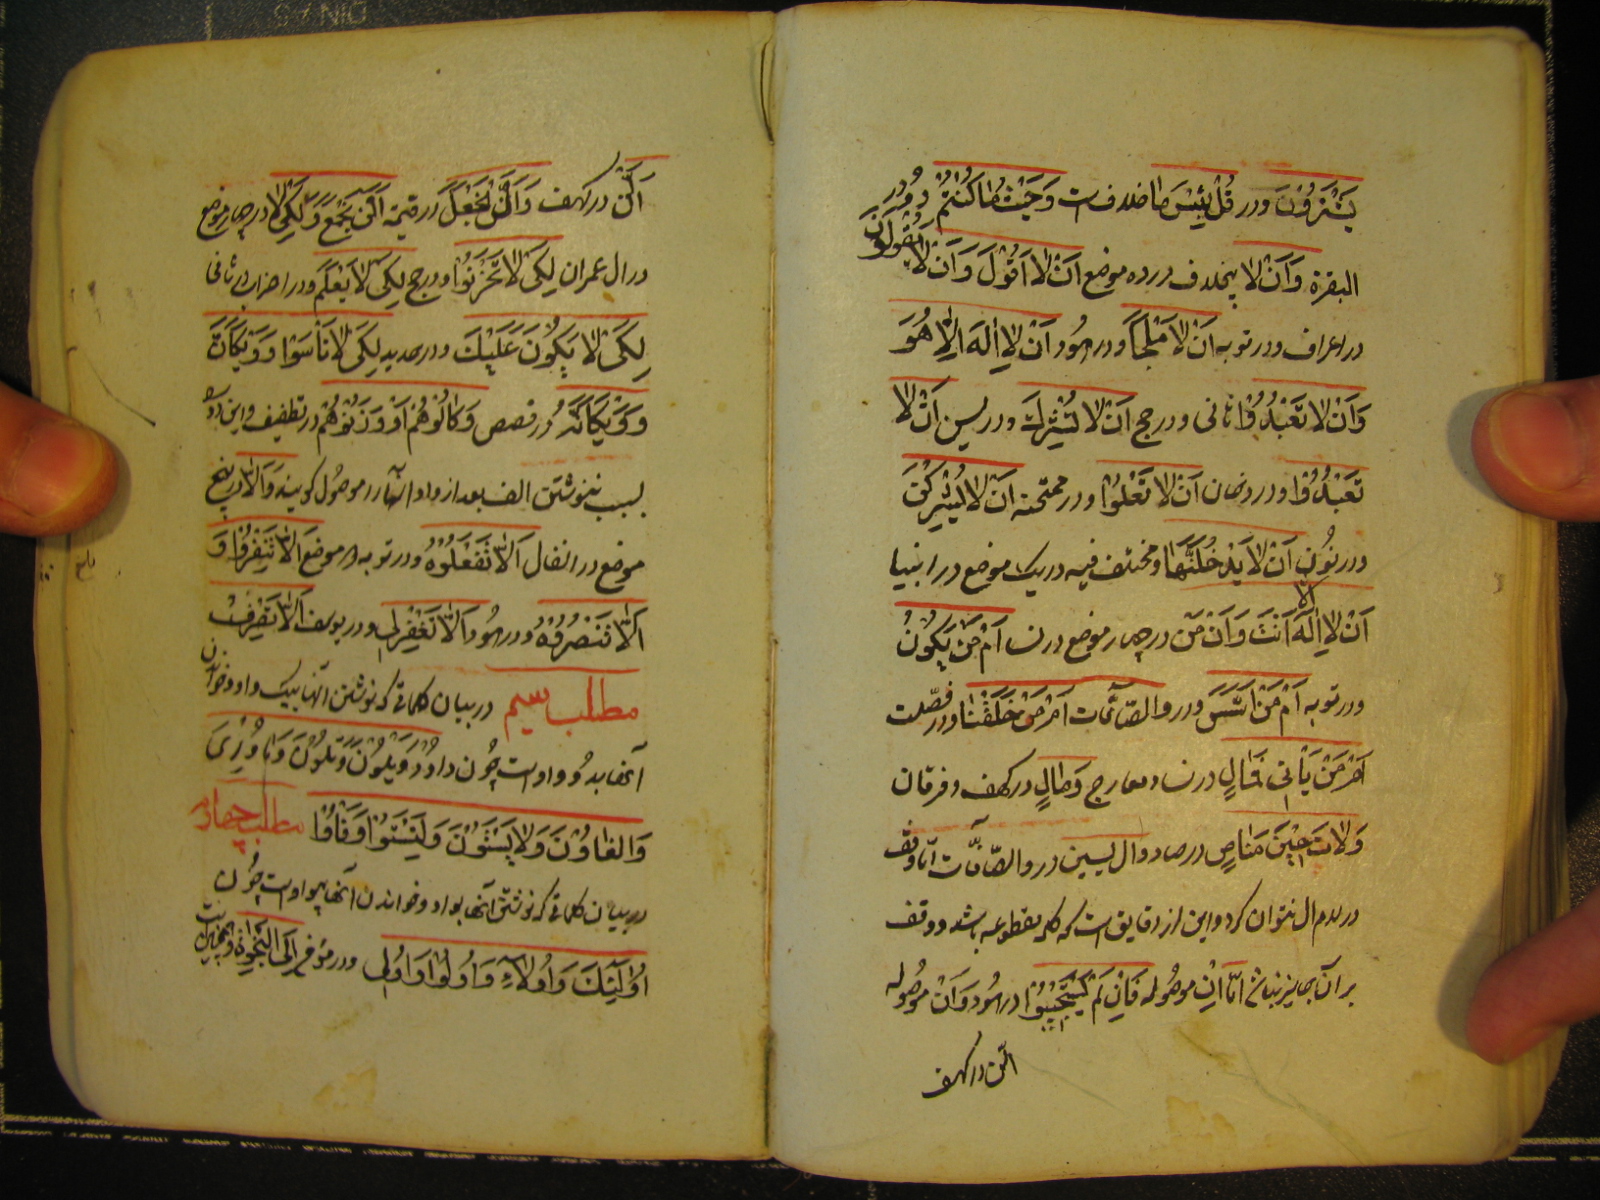 يَشْتَرُونَ ودر قُلْ بِئْسَمَا خلافست وَحَيْثُ مَا كُنْتُمْ دو در
البقرة وَاَنْ لا بخلاف در ده موضع اَنْ لا اَقُولَ وَاَنْ لا يَقُولُونَ
در اعراف ودر توبه اَنْ لا مَلْجَاَ ودر هود اَنْ لا اِلٰهَ اِلّا هُوَ
وَاَنْ لا تَعْبُدُوا ثانى ودر حج اَنْ لا تُشْرِكْ ودر يس اَنْ لا
تَعْبُدُوا ودر دخان اَنْ لا تَعْلُوا ودر ممتحنه اَنْ لا يُشْرِكْنَ
ودر نون اَنْ لا يَدْخُلَنَّهَا ومختلف فيه در يک موضع در انبيا
اَنْ لا اِلٰهَ اِلّا اَنْتَ وَاَنْ مَنْ در چهار موضع در نسا اَمْ مَنْ يَكُونُ
ودر توبه اَمْ مَنْ اَسَّسَ ودر والصّافّات اَمْ مَنْ خَلَقْنَا ودر فصّلت
اَمْ مَنْ يَاْتِى فَمَالِ در نسا ومعارج وَمَالِ در كهف وفرقان
وَلاتَ حِينَ مَنَاصٍ در صاد وال يسين در والصّافّات امّا وقف
در لام ال نتوان كرد واين از دقايق است كه كلمه مقطوعه باشد ووقف
بر آن جايز نباشد امّا اِنْ موصوله فَاِنْ لَمْ يَسْتَجِيبُوا در هود وَاَنْ موصوله
الّن در كهف
اَلَّنْ در كهف وَاَلَّنْ نَجْعَلَ در قيمة اَلَّنْ نَجْمَعَ وَلِكَىْ لا در چهار موضع
در ال عمران لِكَىْ لا تَحْزَنُوا ودر حج لِكَىْ لا يَعْلَمَ ودر احزاب در ثانى
لِكَىْ لا يَكُونَ عَلَيْكَ ودر حديد لِكَىْ لا تَاْسَوْا وَوَيْكَاَنَّ
وَوَيْكَاَنَّهُ در قصص وَكَالُوهُمْ اَوْ وَزَنُوهُمْ در تطفيف واين دو
بسبب ننوشتن الف بعد از واو آنها را موصول كويند وَاَلّا در پنج
موضع در انفال اَلّا تَفْعَلُوهُ ودر توبه در موضع اَلّا تَنْفِرُوا وَ
اَلّا تَنْصُرُوهُ ودر هود وَاَلّا تَغْفِرْلِى ودر يوسف اَلّا تَصْرِفْ
مطلب سيم در بيان كلماتى كه نوشتن آنها بيک واو وخواندن
آنها بدو واو است چون دَاوُدَ وَيَلْوُنَ وَتَلْوُنَ وَمَا وُرِىَ
وَالْغَاوُنَ وَلا يَسْتَوُنَ وَلِيَسْتَوُا وَفَاْوُا مطلب چهارم
در بيان كلماتى كه نوشتن آنها بواو وخواندن آنها بيواو است چون
اُولٰئِكَ وَاُولاءِ وَاُولُوا وَاُولِى ودر مؤمن اِلَى النَّجٰوةِ